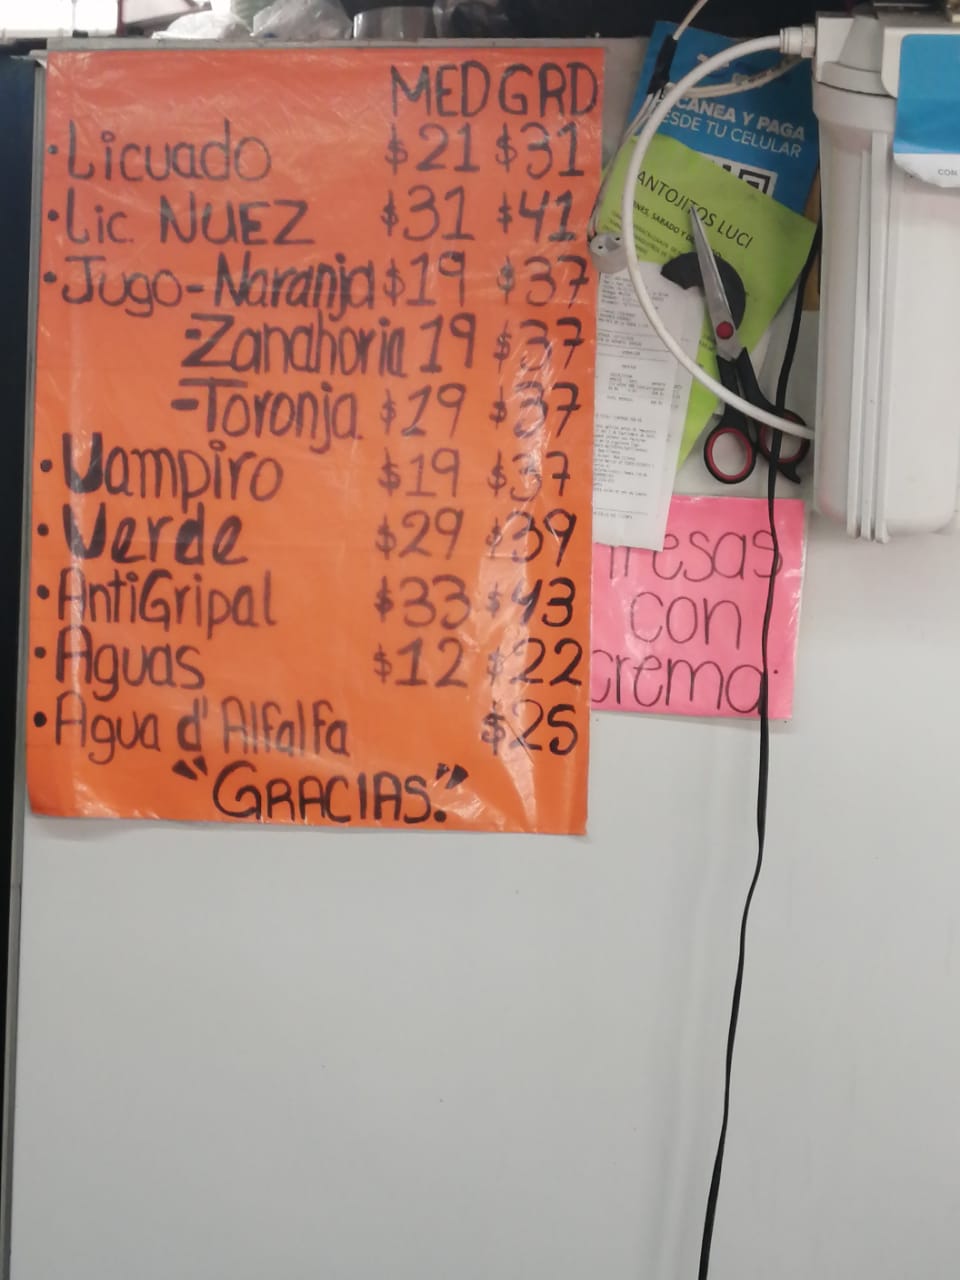 MED GRD
• Licuado $21 $31
• Lic. NUEZ $31 $41
• Jugo - Naranja $19 $37
- Zanahoria 19 $37
- Toronja $19 $37
• Vampiro $19 $37
• Verde $29 $39
• AntiGripal $33 $43
• Aguas $12 $22
• Agua d' Alfalfa $25
"GRACIAS."
CANEA Y PAGA
ESDE TU CELULAR
ANTOJITOS LUCI
resas
con
crema
CON